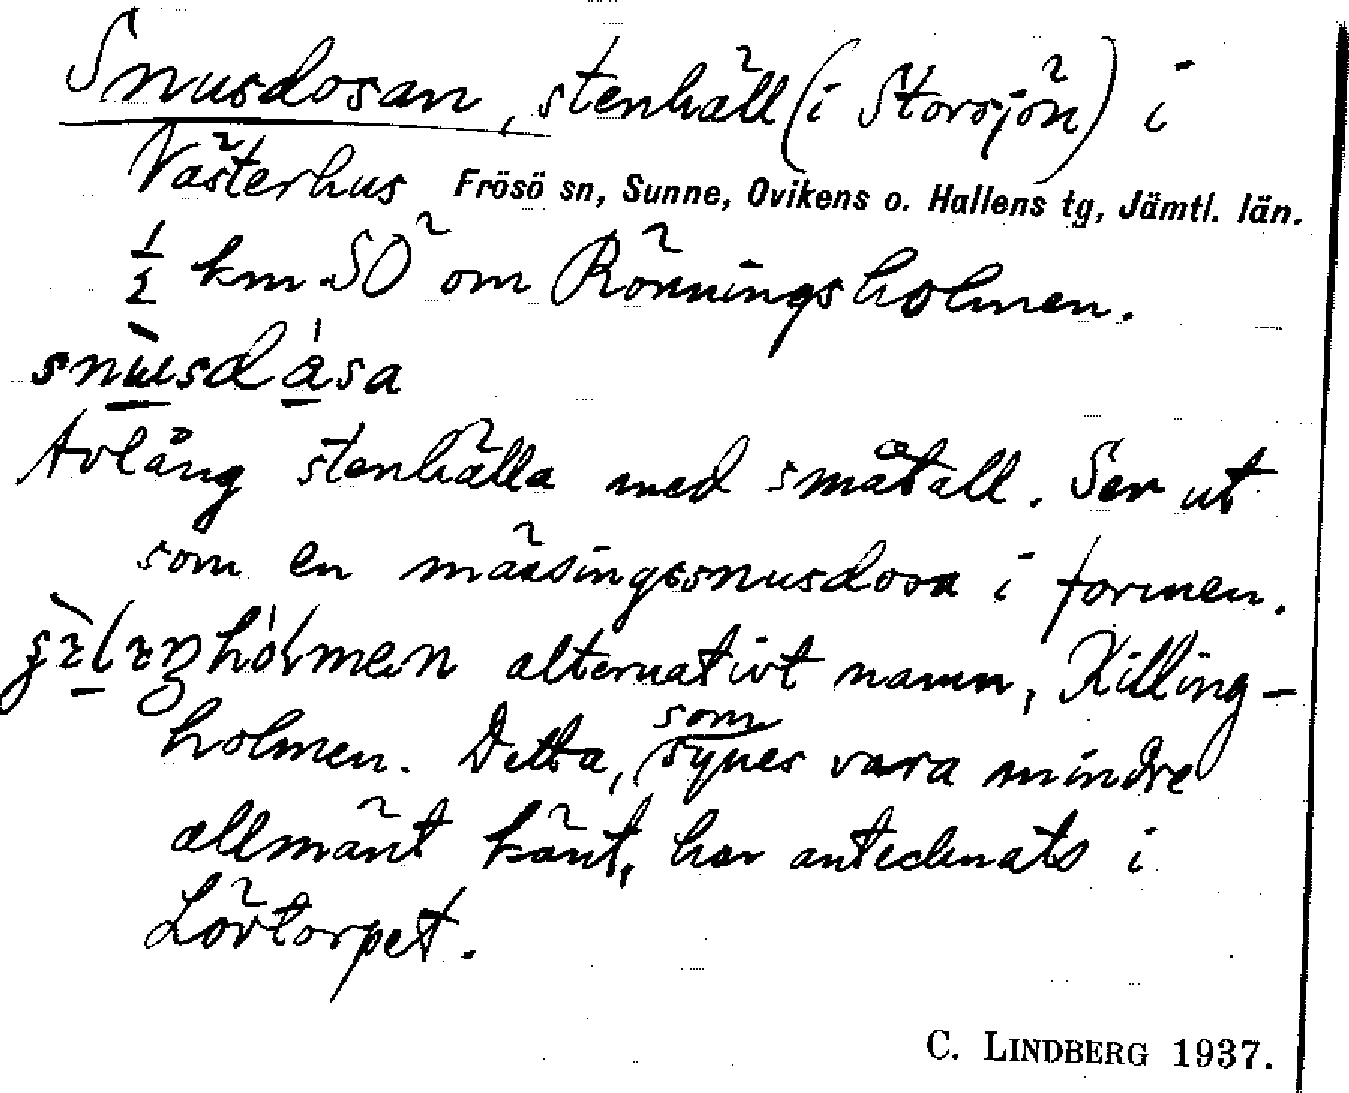 Snusdosan, stenhäll (i Storsjön) i
Västerhus Frösö sn, Sunne, Ovikens o. Hallens tg, Jämtl. län.
½ km SÖ om Rönningsholmen.
snusdåsa
Avlång stenhälla med småtall. Ser ut
som en mässingssnusdosa i formen.
hólmen alternativt namn, Killing-
holmen. Detta, som synes vara mindre
allmänt känt, har antecknats i
Lövtorpet.
C. LINDBERG 1937.